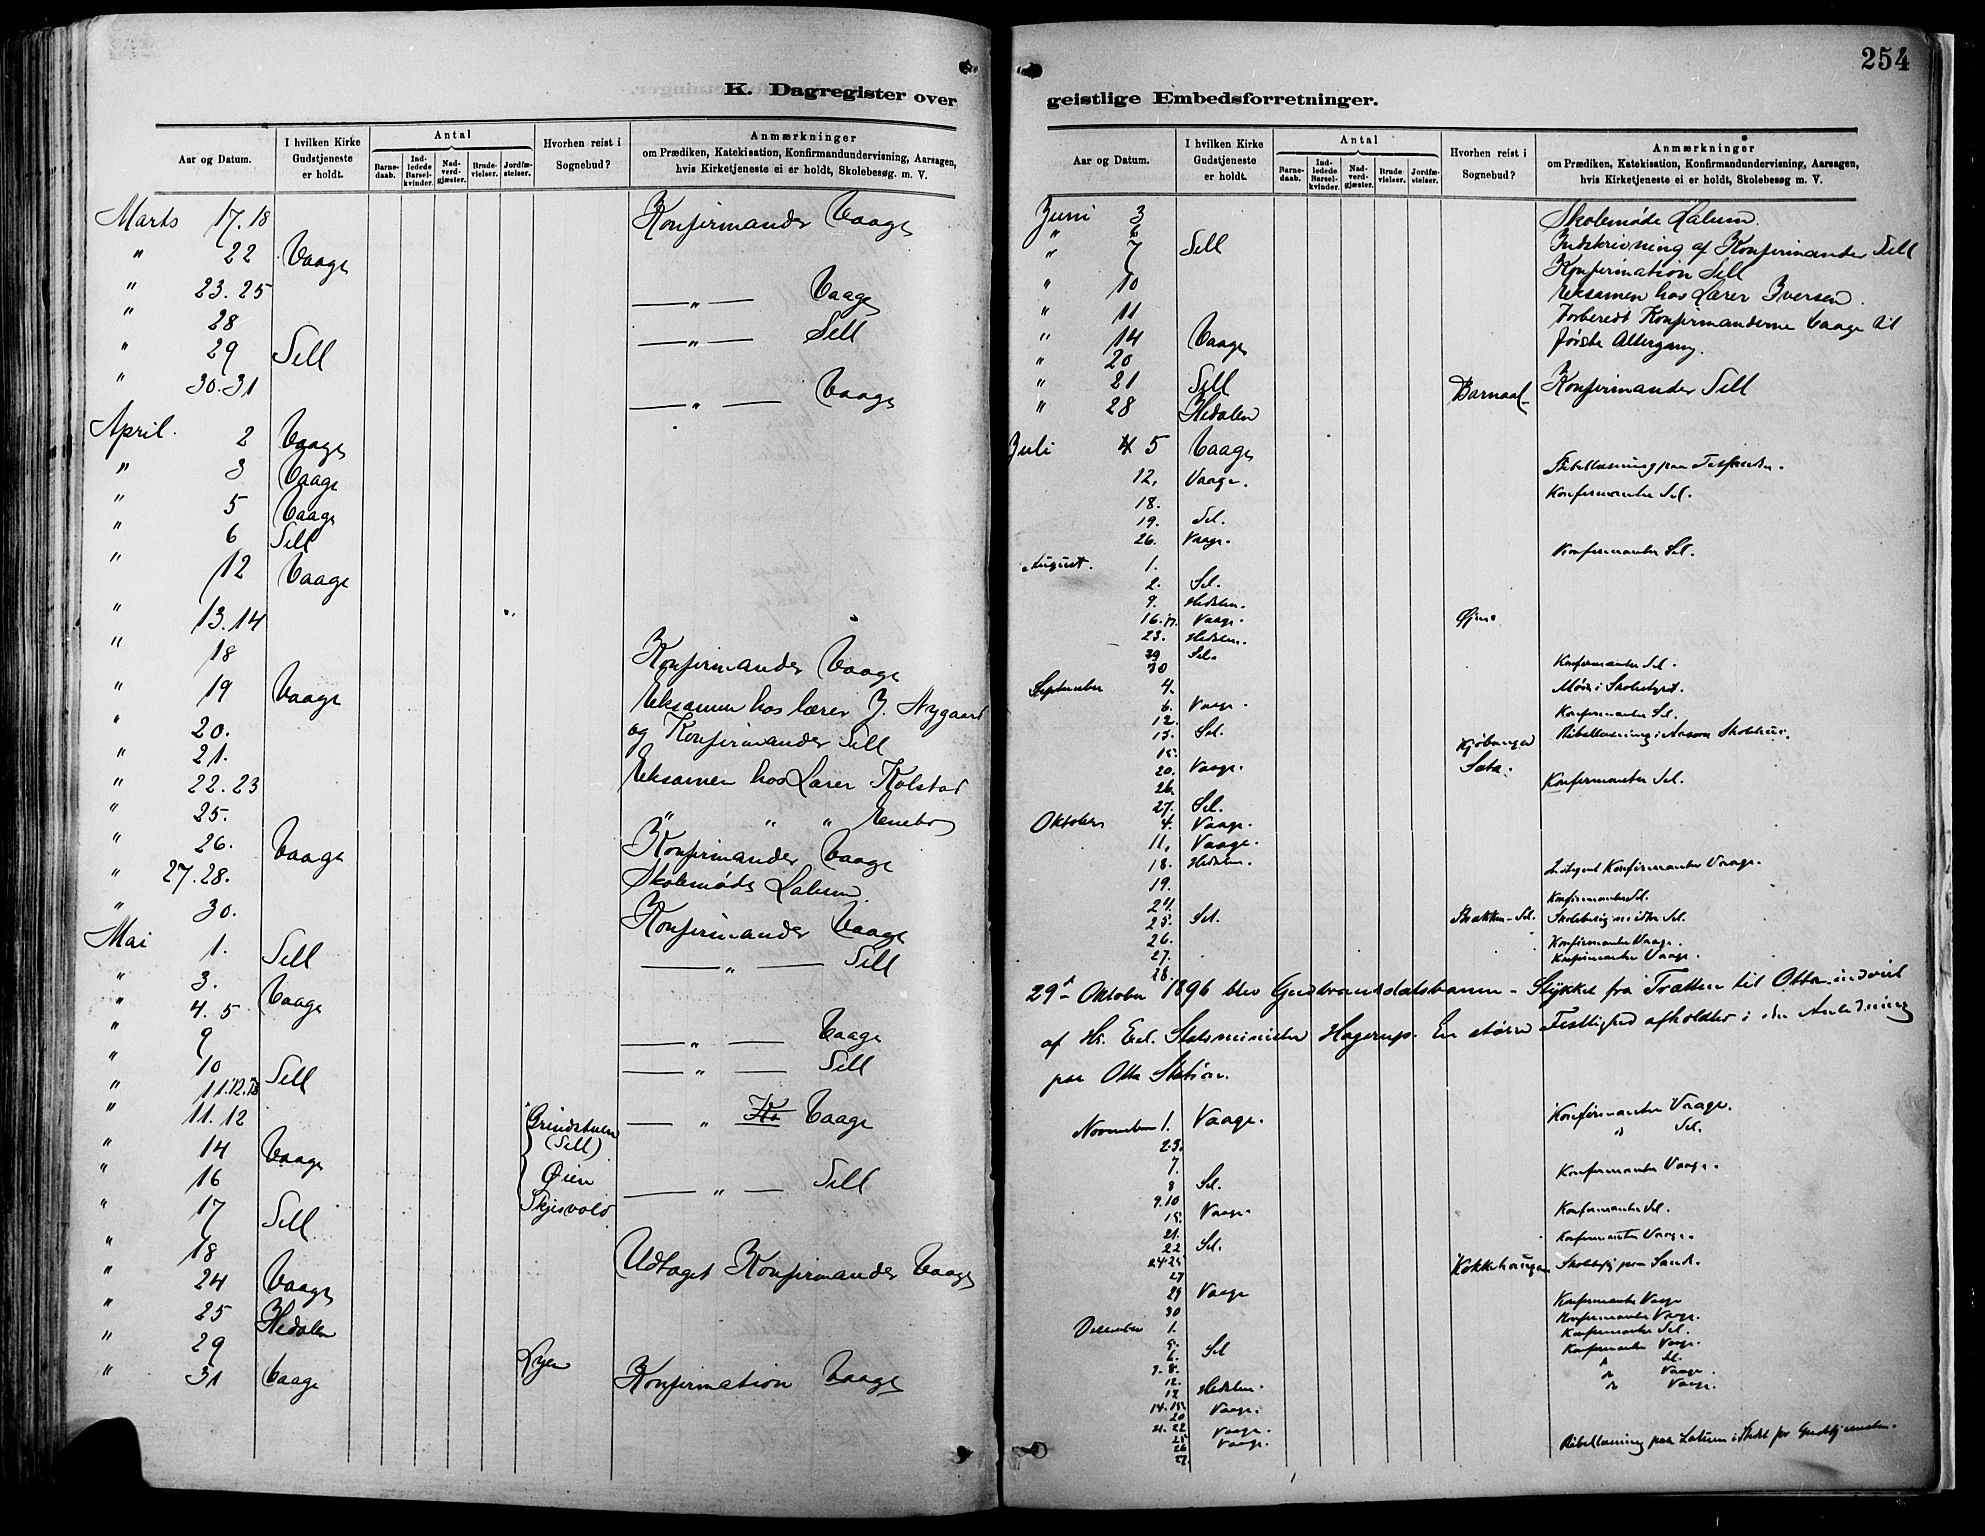 K. Dagregister over
Aar og Datum. I hvilken Kirke Gudstjeneste er holdt. Antal Barne-daab. Ind-ledede Barsel-kvinder. Nad-verd-gjæster. Brude-vielser. Jordfæ-stelser. Hvorhen reist i Sognebud? Anmærkninger om Prædiken, Katekisation, Konfirmandundervisning, Aarsagen, hvis Kirketjeneste ei er holdt, Skolebesøg. m. V.
Marts 17.18 Konfirmander Vaage
" 22 Vaage
" 23.25 — " — Vaage
" 28 — " — Sell
" 29 Sell
" 30.31 — " — Vaage
April. 2 Vaage
" 3 Vaage
" 5 Vaage
" 6 Sell
" 12 Vaage
" 13.14
" 18 Konfirmander Vaage
" 19 Vaage
" 20. Eksamen hos lærer J. Nygaard og Konfirmander Sell
" 21.
" 22.23 Eksamen hos Lærer Kolstad
" 25. " " " Enebo
" 26. Vaage Konfirmander Vaage
" 27.28. Skolemøde Lalum.
" 30. Konfirmander Vaage
Mai 1. Sell
" 3. Vaage — " — Sell
" 4.5
" 9 — " — Vaage
" 10 Sell — " — Sell
" 11.12.13
" 11.12 Grindstuen (Sell) — " — Vaage
" 14 Vaage
" 16 Øien — " — Sell
" 17 Sell Skjesvold
" 18 Udtaget Konfirmander Vaage
" 24 Vaage
" 25 Hedalen
" 29
" 31 Vaage Konfirmation Vaage
254
geistlige Embedsforretninger.
Aar og Datum. I hvilken Kirke Gudstjeneste er holdt. Antal Barne-daab. Ind-ledede Barsel-kvinder. Nad-verd-gjæster. Brude-vielser. Jordfæ-stelser. Hvorhen reist i Sognebud? Anmærkninger om Prædiken, Katekisation, Konfirmandundervisning, Aarsagen, hvis Kirketjeneste ei er holdt, Skolebesøg m. V.
Juni 3 Skolemøde Lalum.
" 6 Indskrivning af Konfirmander Sell
" 7 Sell Konfirmation Sell
" 10 Eksamen hos Lærer Iversen.
" 11 Forberedt Konfirmanderne Vaage til
" 14 Vaage første Altergang.
" 20
" 21 Sell Konfirmander Sell
" 28 Hedalen
Juli 5 Vaage
12. Vaage.
18. Konfirmanter Sel.
19. Sel.
26. Vaage.
August. 1. Konfirmanter Sel.
2. Sel.
9. Hedalen.
16.17. Vaage.
23. Hedalen.
29 Sel. Konfirmanter Sel.
30
September 4. Møde i Skolestyret.
6. Vaage.
12. Konfirmanter Sel.
13. Sel.
15.
20. Vaage.
26. Konfirmanter Sel.
27. Sel.
Oktober 4. Vaage.
11. Vaage.
18. Hedalen.
19. Konfirmanter Vaage.
24. Konfirmanter Sel.
25. Sel. Bakken - Sel.
26. Konfirmanter Vaage.
27. Konfirmanter Vaage.
28.
29de Oktober 1896 blev Gudbrandsdalsbanen - Stykket fra Trætten til Otta indviet
af Hr. Statsminister Hagerup. En større Festlighed afholdtes i den Anledning
paa Otta Station.
November 1. Vaage. Konfirmanter Vaage.
2.3. " Sel.
7. Konfirmanter Vaage.
8 Sel.
9.10 Konfirmanter Sel.
15. Vaage.
21. Konfirmanter Vaage.
22 Sel.
24.25 Kokkehaugen Skolebesøg paa Sande.
27
29 Vaage Konfirmanter Vaage
30 Konfirmanter Vaage.
December 1. Konfirmanter Sel.
5. Konfirmanter Vaage.
6. Sel " Sel.
7.8. " Vaage.
12. " Vaage.
13 Hedalen.
14.15
20 Vaage.
21.22
25 Vaage.
26 Vaage.
27.